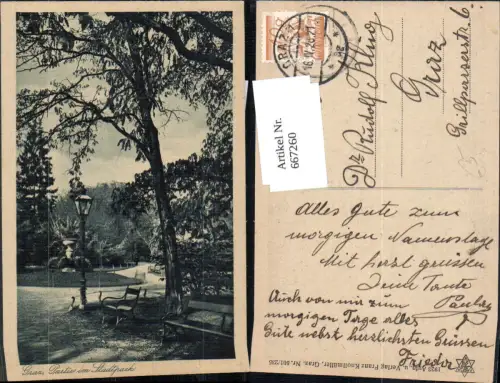 Graz, Partie im Stadtpark
Artikel Nr.
667260
GRAZ
Dr. Rudolf Klug
Graz
Grillparzerstr. 6.
Alles Gute zum
morgigen Namenstag
Mit herzl grüssen
Deine Tante
Auch von mir zum
morgigen Tage alles
Gute nebst herzlichsten Grüssen
Frieda
Verlag Franz Knollmüller, Graz. Nr.